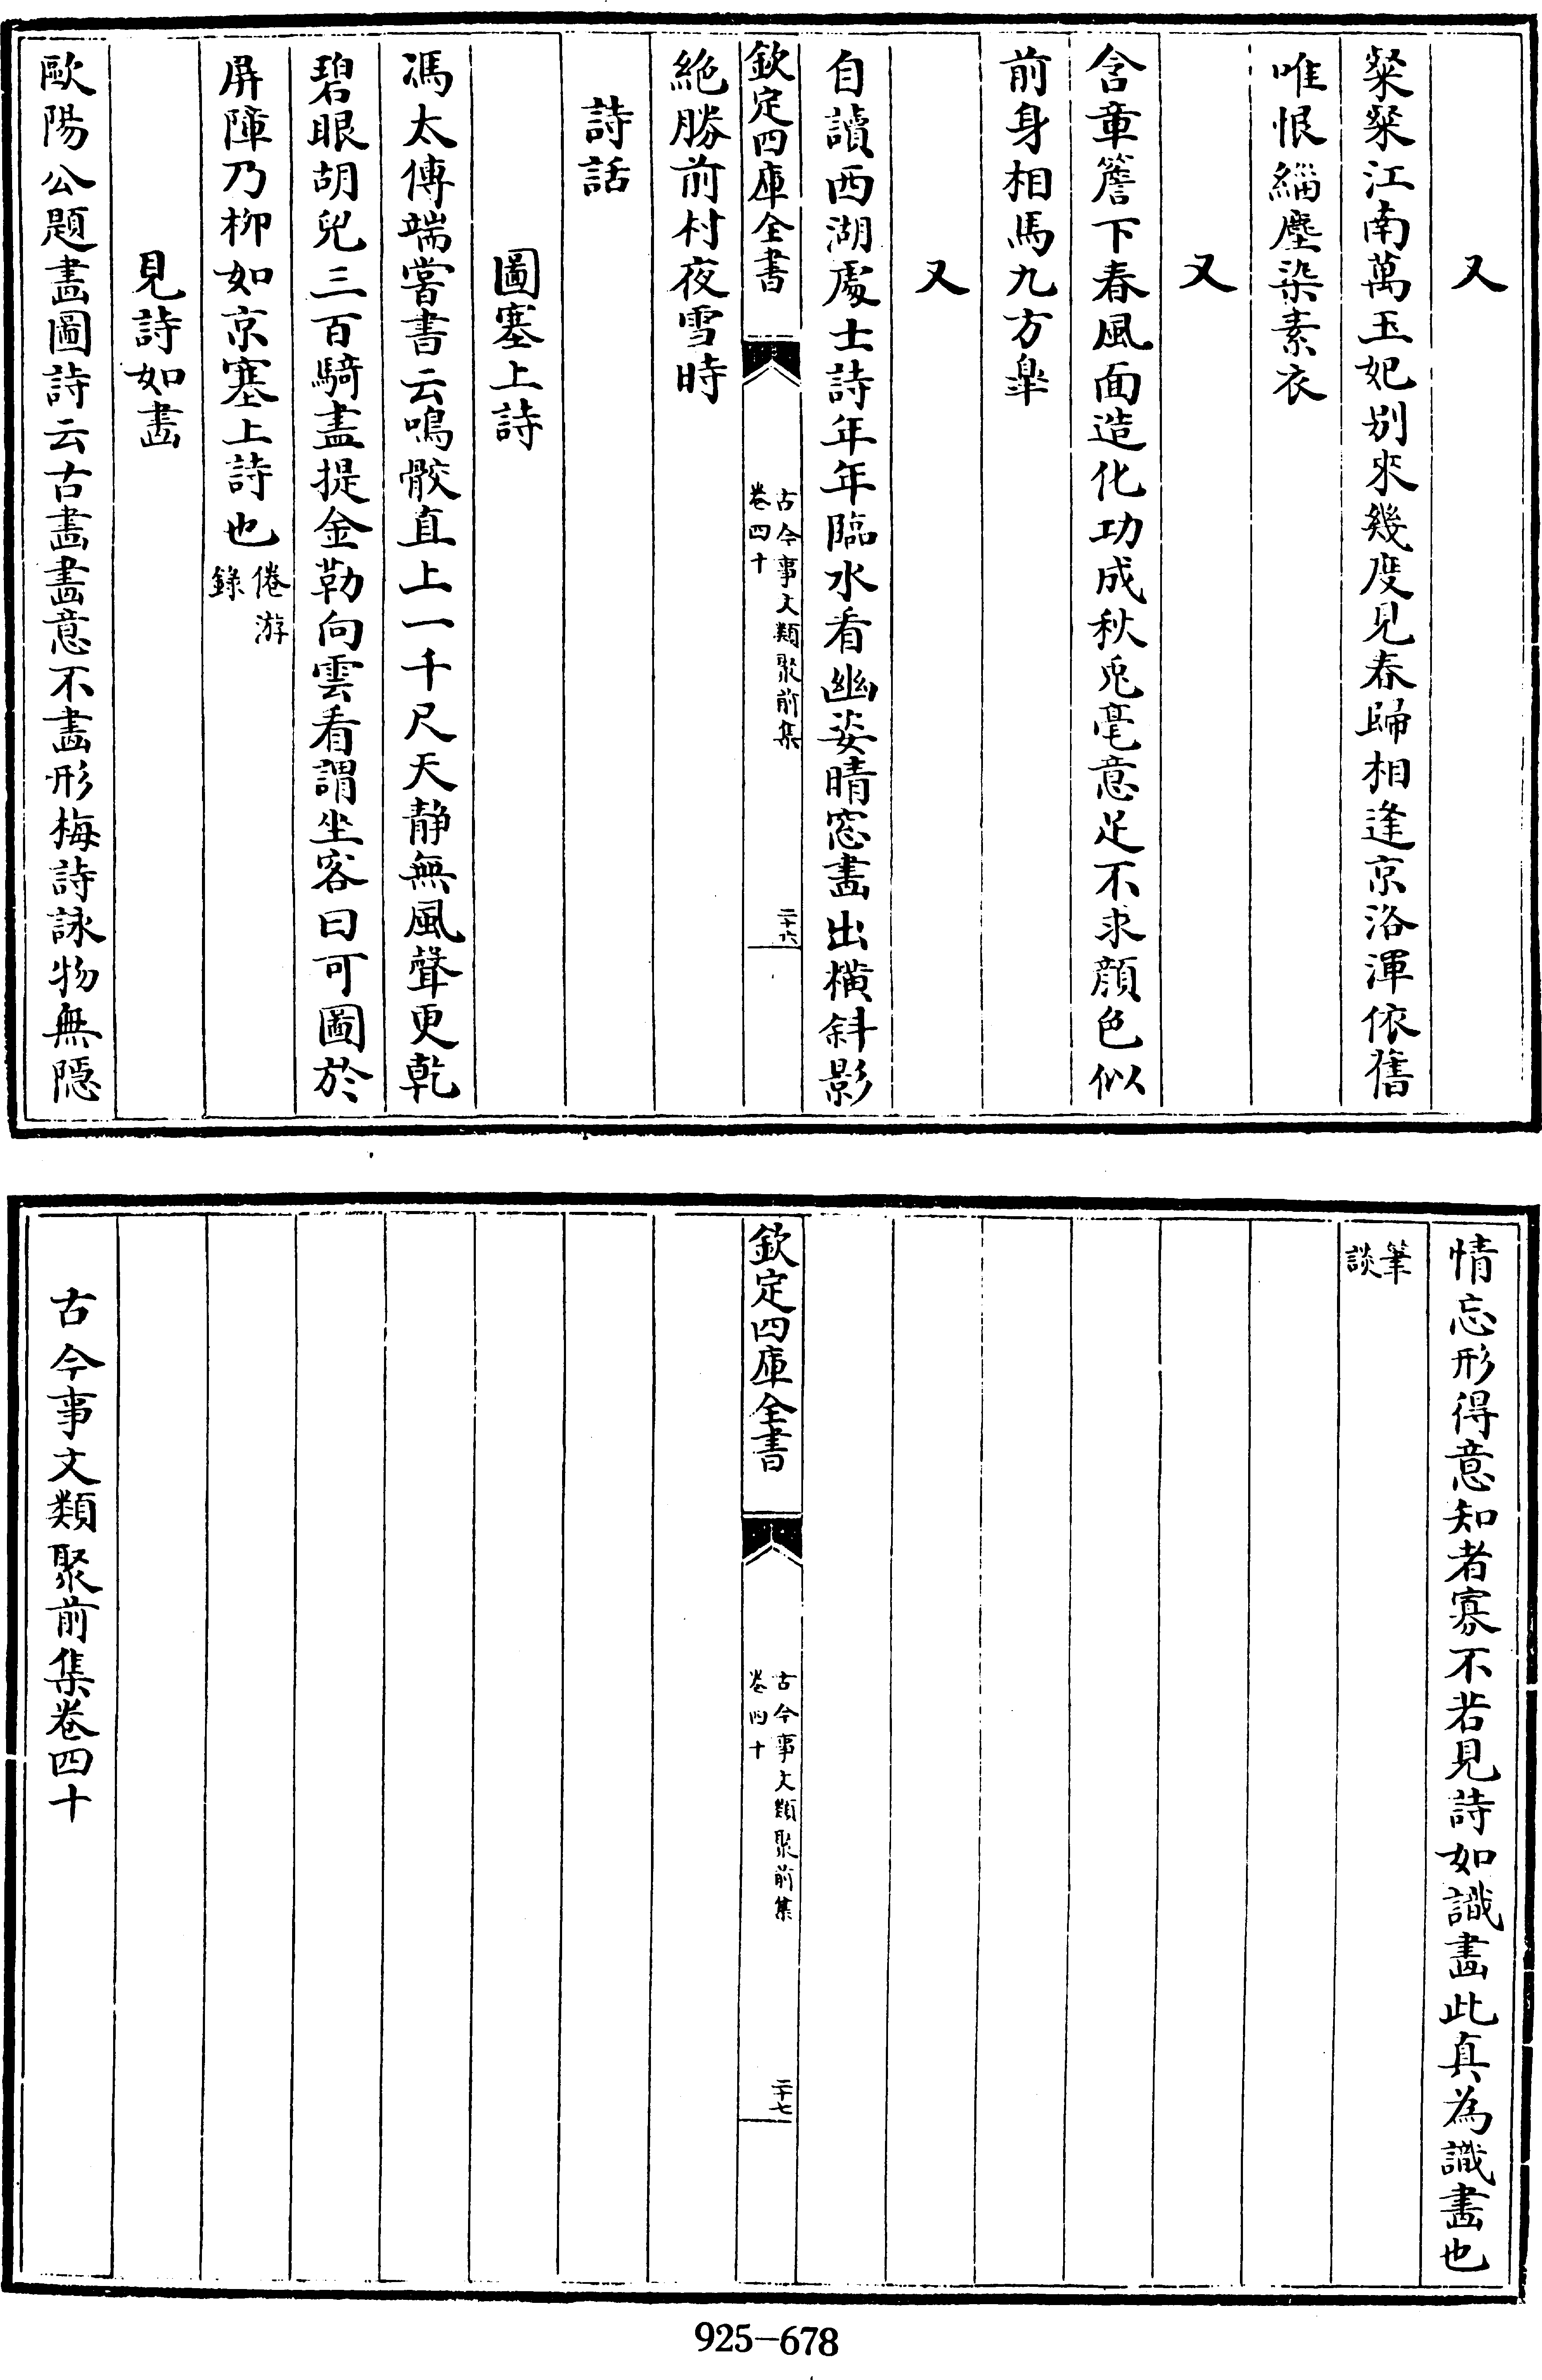 又
粲粲江南萬玉妃別來幾度見春歸相逢京洛渾依舊
唯恨緇塵染素衣
又
含章簷下春風面造化功成秋兎毫意足不求顔色似
前身相馬九方臯
又
自讀西湖處士詩年年臨水看幽姿晴窓畫出橫斜影
欽定四庫全書
古今事文類聚前集
卷四十
二十六
絶勝前村夜雪時
詩話
圖塞上詩
馮太傅端嘗書云鳴骹直上一千尺天静無風聲更乾
碧眼胡兒三百騎盡提金勒向雲看謂坐客曰可圖於
屏障乃柳如京塞上詩也倦游
錄
見詩如畫
歐陽公題畫圖詩云古畫畫意不畫形梅詩詠物無隠
情忘形得意知者寡不若見詩如識畫此真為識畫也
筆
談
欽定四庫全書
古今事文類聚前集
卷四十
二十七
古今事文類聚前集卷四十
925-678